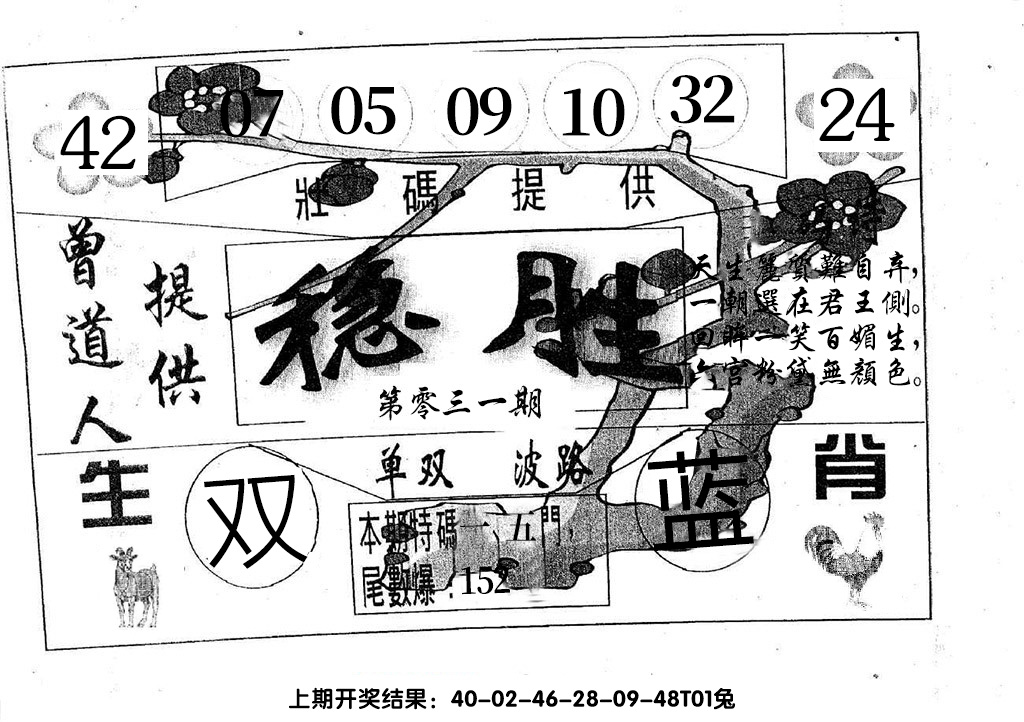 42 07 05 09 10 32 24
壯碼提供
特
曾道人
提供
稳胜
第零三一期
天生麗質難自弃，
一潮選在君王側。
回眸一笑百媚生，
六宫粉黛無顏色。
单双 波路
生肖
双
蓝
本期特碼一、五門，
尾數爆：152
上期开奖结果：40-02-46-28-09-48T01兔